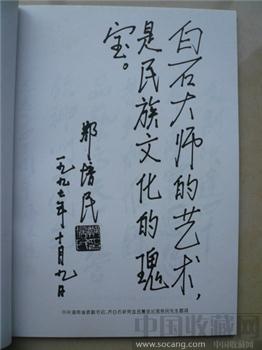 白石大师的艺术，
是民族文化的瑰
宝。
郑培民
一九九七年十月九日
中国收藏网
socang.com